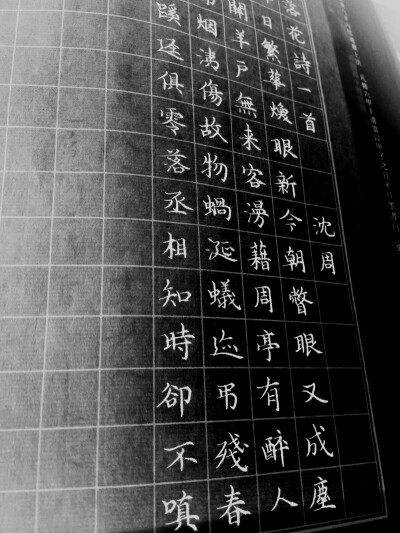 落花詩一首 沈周
日繁華煥眼新今朝瞥眼又成塵
關羊戶無来客漫藉周亭有醉人
烟洟傷故物蝸涎蟻迹弔殘春
蹊迳俱零落丞相知時卻不嗔